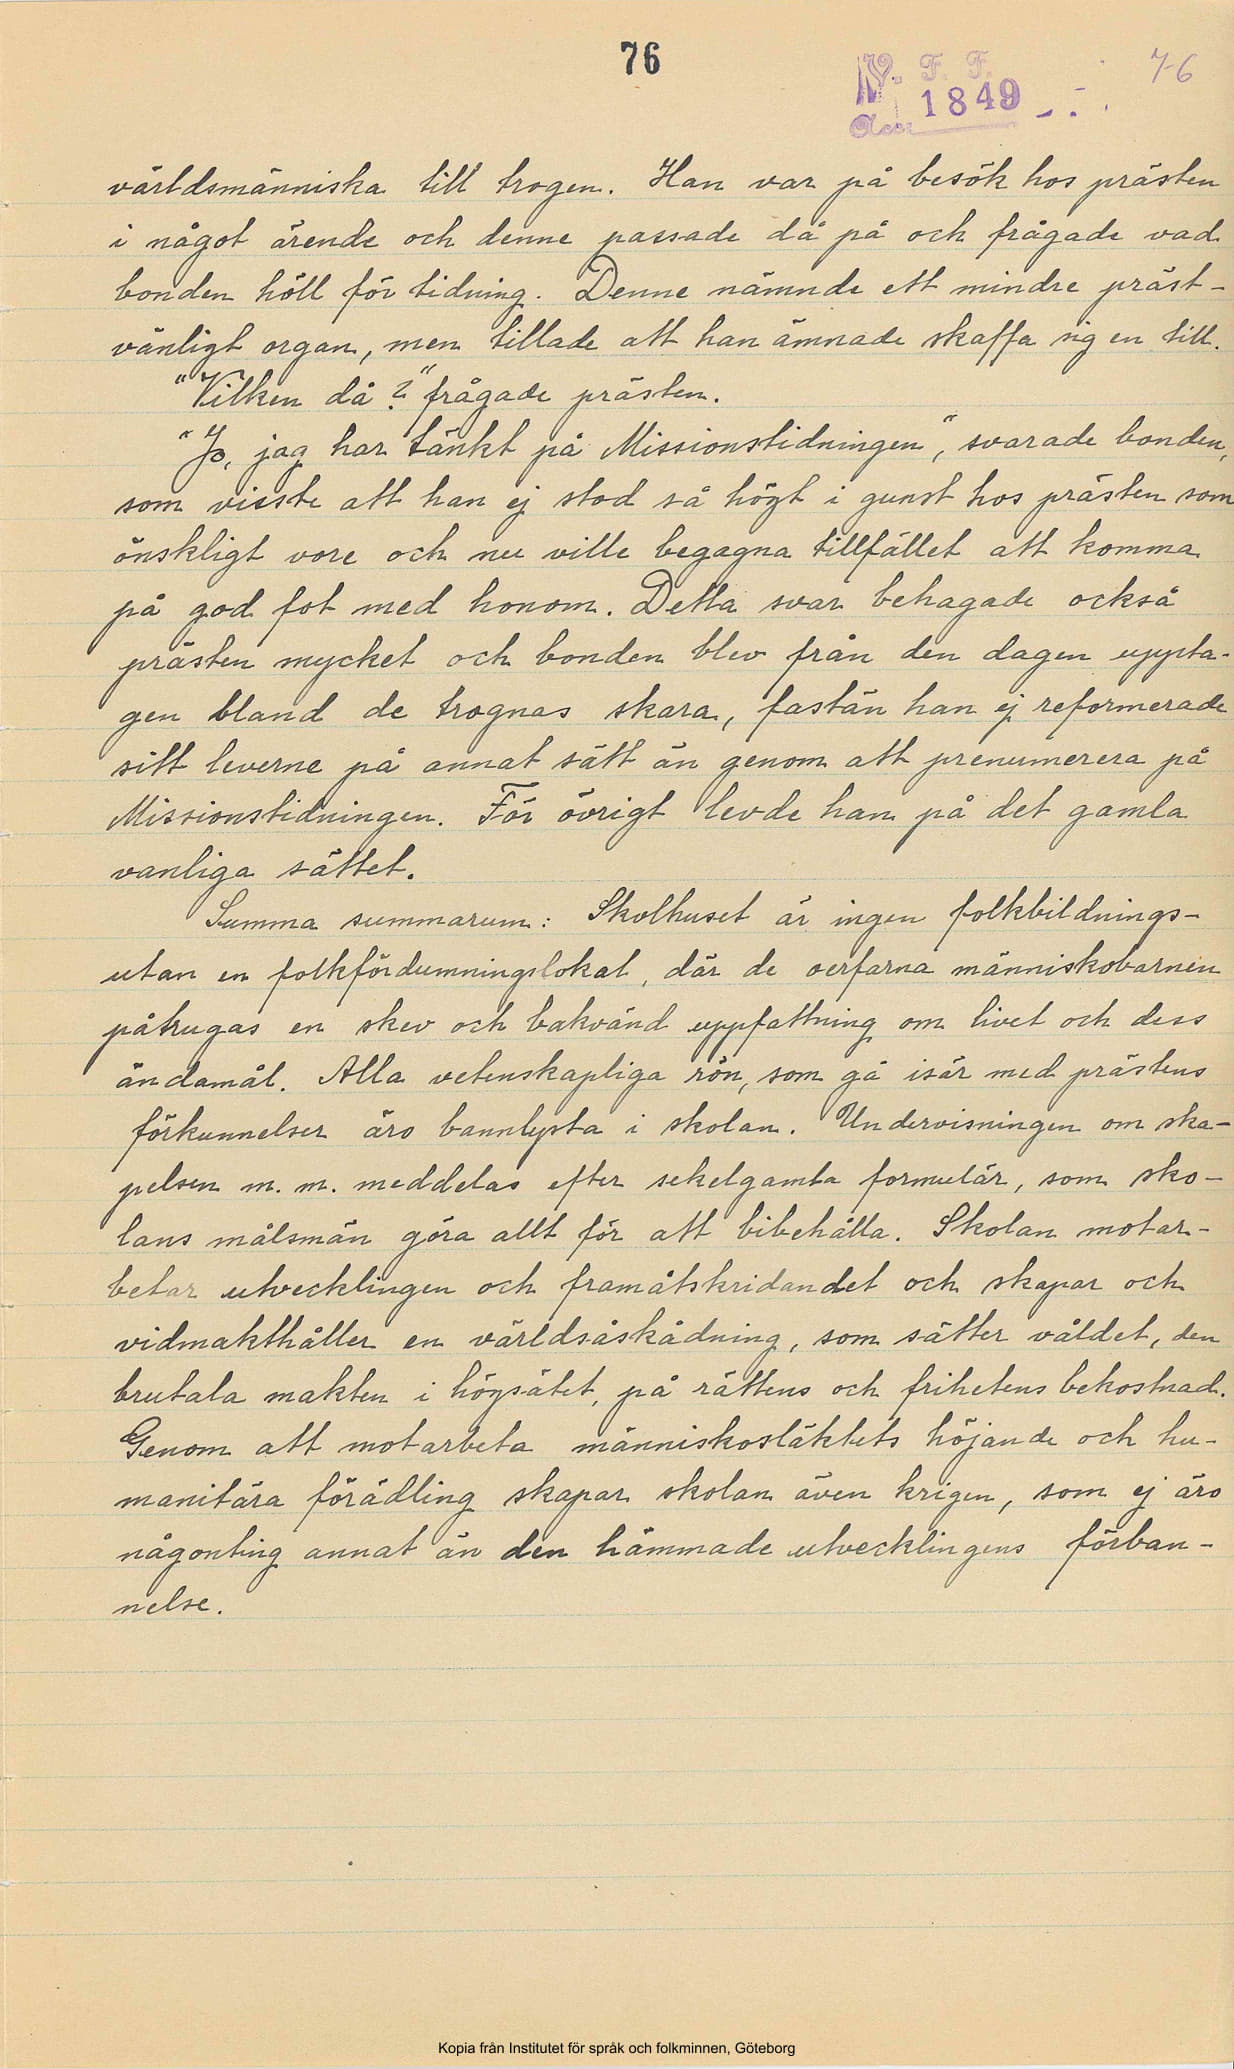 76
V. F. F.
76
1849
Acc.
världsmänniska till trogen. Han var på besök hos prästen
i något ärende och denne passade då på och frågade vad
bonden höll för tidning. Denne nämnde ett mindre präst-
vänligt organ, men tillade att han ämnade skaffa sig en till.
"Vilken då?" frågade prästen.
"Jo, jag har tänkt på Missionstidningen", svarade bonden,
som visste att han ej stod så högt i gunst hos prästen som
önskligt vore och nu ville begagna tillfället att komma
på god fot med honom. Detta svar behagade också
prästen mycket och bonden blev från den dagen uppta-
gen bland de trognas skara, fastän han ej reformerade
sitt leverne på annat sätt än genom att prenumerera på
Missionstidningen. För övrigt levde han på det gamla
vanliga sättet.
Summa summarum: Skolhuset är ingen folkbildnings-
utan en folkfördumningslokal, där de oerfarna människobarnen
påtrugas en skev och bakvänd uppfattning om livet och dess
ändamål. Alla vetenskapliga rön, som gå isär med prästens
förkunnelser äro bannlysta i skolan. Undervisningen om ska-
pelsen m. m. meddelas efter sekelgamla formulär, som sko-
lans målsmän göra allt för att bibehålla. Skolan motar-
betar utvecklingen och framåtskridandet och skapar och
vidmakthåller en världsåskådning, som sätter våldet, den
brutala makten i högsätet, på rättens och frihetens bekostnad.
Genom att motarbeta människosläktets höjande och hu-
manitära förädling skapar skolan även krigen, som ej äro
någonting annat än den hämmade utvecklingens förban-
nelse.
Kopia från Institutet för språk och folkminnen, Göteborg